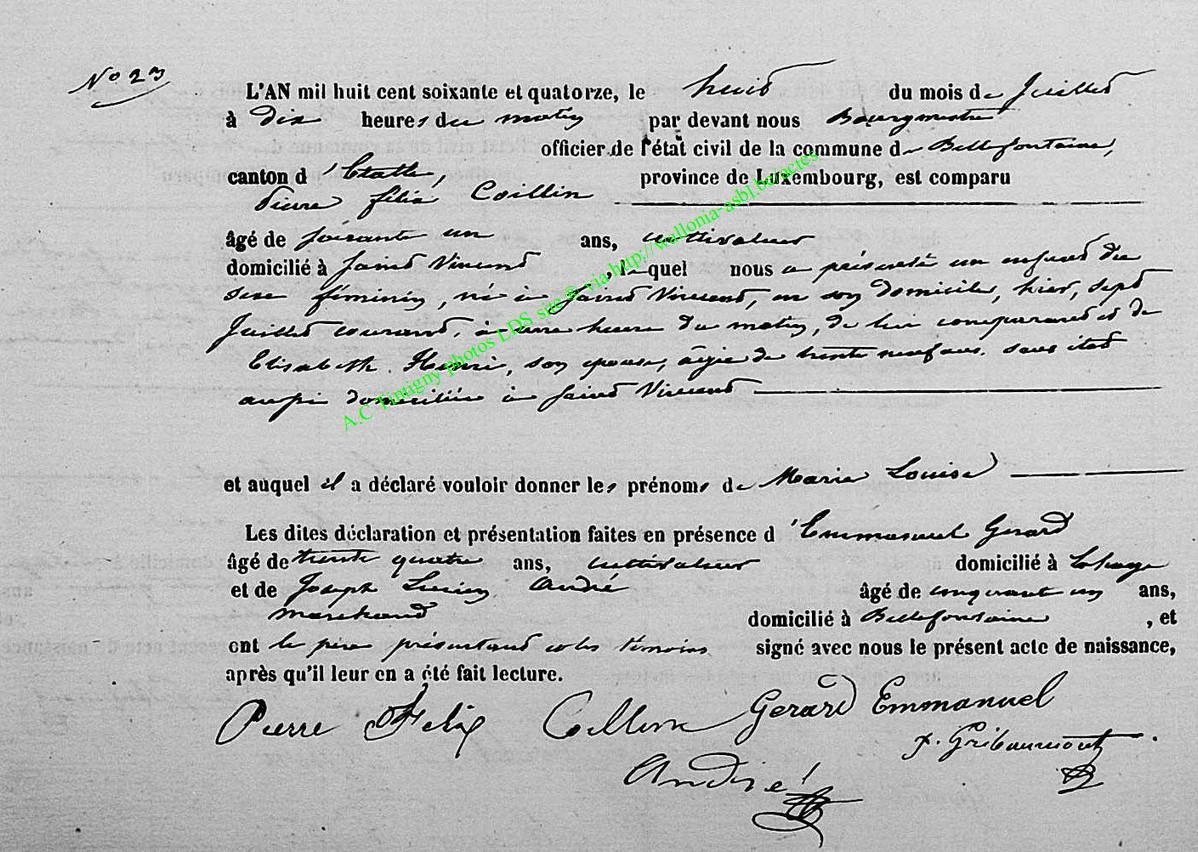 No 23
L'AN mil huit cent soixante et quatorze, le huit du mois de Juillet
à dix heures du matin par devant nous Bourgmestre
officier de l'état civil de la commune de Bellefontaine,
canton d'Etalle, province de Luxembourg, est comparu
Pierre Félix Collin
âgé de soixante un ans, cultivateur
domicilié à Saint Vincent, lequel nous a présenté un enfant du
sexe féminin, né à Saint Vincent, en son domicile, hier, sept
Juillet courant, à une heure du matin, de lui comparant et de
Elisabeth Henri, son épouse, âgée de trente neuf ans, sans état
aussi domiciliée à Saint Vincent
et auquel il a déclaré vouloir donner les prénoms de Marie Louise
Les dites déclaration et présentation faites en présence d'Emmanuel Gerard
âgé de trente quatre ans, cultivateur domicilié à Lahage
et de Joseph Lucien André âgé de cinquante un ans,
marchand domicilié à Bellefontaine, et
ont le père présentant et les témoins signé avec nous le présent acte de naissance,
après qu'il leur en a été fait lecture.
Pierre Félix Collin Gerard Emmanuel
Gribaumont
André
A.C Tintigny photos LDS site ® via http://wallonia-asbl.be/actes